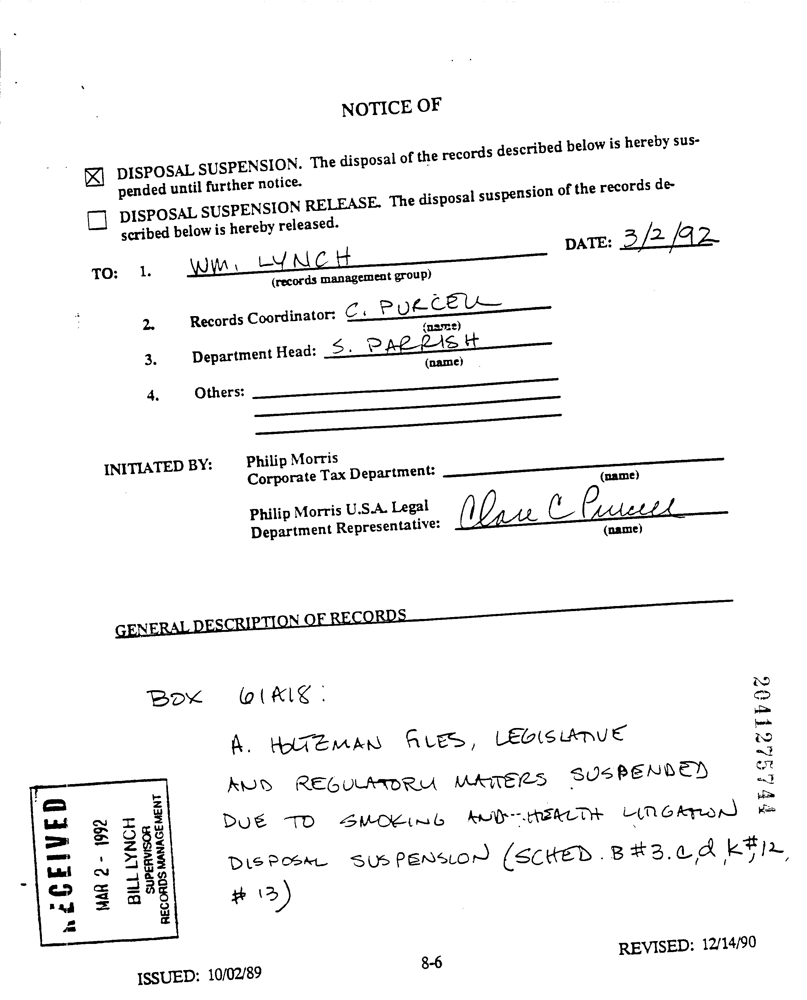 NOTICE OF
☒ DISPOSAL SUSPENSION. The disposal of the records described below is hereby sus-
pended until further notice.
☐ DISPOSAL SUSPENSION RELEASE. The disposal suspension of the records de-
scribed below is hereby released.
DATE: 3/2/92
TO: 1. WM. LYNCH
(records management group)
2. Records Coordinator: C. PURCELL
(name)
3. Department Head: S. PARRISH
(name)
4. Others:
INITIATED BY: Philip Morris
Corporate Tax Department:
(name)
Philip Morris U.S.A. Legal
Department Representative: Clare C Purcell
(name)
GENERAL DESCRIPTION OF RECORDS
BOX 61A18:
A. HOLTZMAN FILES, LEGISLATIVE
AND REGULATORY MATTERS SUSPENDED
DUE TO SMOKING AND HEALTH LITIGATION
DISPOSAL SUSPENSION (SCHED. B #3.C,d,K#,12,
# 13)
2041275744
RECEIVED
MAR 2 - 1992
BILL LYNCH
SUPERVISOR
RECORDS MANAGEMENT
ISSUED: 10/02/89
8-6
REVISED: 12/14/90